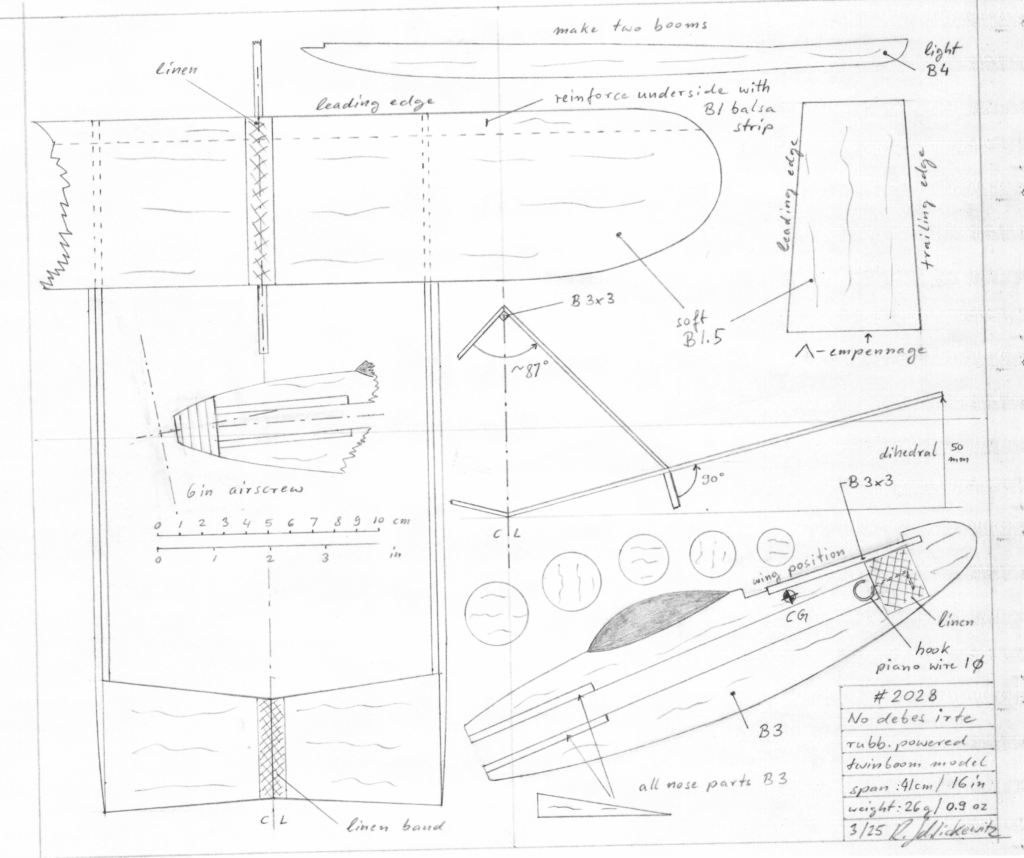 make two booms
light
B4
linen
leading edge
reinforce underside with
B1 balsa
strip
leading edge
trailing edge
B 3x3
soft
B1.5
Λ-empennage
~87°
90°
dihedral 50
mm
B 3x3
6 in airscrew
0 1 2 3 4 5 6 7 8 9 10 cm
0 1 2 3 in
C L
wing position
CG
linen
hook
piano wire 1Ø
B3
all nose parts B3
C L
linen band
# 2028
No debes irte
rubb. powered
twinboom model
span: 41cm/16 in
weight: 26g/0.9 oz
3/25 R.